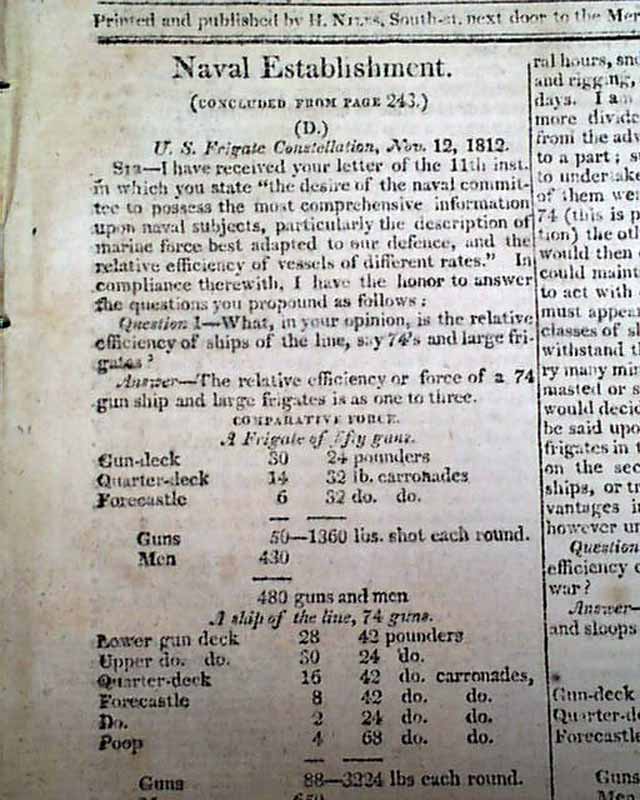 Printed and published by H. NILES, South-st. next door to the Mer
Naval Establishment.
(CONCLUDED FROM PAGE 243.)
(D.)
U. S. Frigate Constellation, Nov. 12, 1812.
SIR—I have received your letter of the 11th inst.
in which you state "the desire of the naval commit-
tee to possess the most comprehensive information
upon naval subjects, particularly the description of
marine force best adapted to our defence, and the
relative efficiency of vessels of different rates." In
compliance therewith, I have the honor to answer
the questions you propound as follows:
Question 1—What, in your opinion, is the relative
efficiency of ships of the line, say 74's and large fri-
gates?
Answer—The relative efficiency or force of a 74
gun ship and large frigates is as one to three.
COMPARATIVE FORCE.
A Frigate of fifty guns.
Gun-deck 30 24 pounders
Quarter-deck 14 32 lb. carronades
Forecastle 6 32 do. do.
Guns 50—1360 lbs. shot each round.
Men 430
480 guns and men
A ship of the line, 74 guns.
Lower gun deck 28 42 pounders
Upper do. do. 30 24 do.
Quarter-deck 16 42 do. carronades,
Forecastle 8 42 do. do.
Do. 2 24 do. do.
Poop 4 68 do. do.
Guns 88—3224 lbs each round.
ral hours,
and rigging,
days. I am
more divide
from the adv
to a part;
to undertake
of them wer
74 (this is p
tion) the oth
would then
could maint
to act with
must appear
classes of sh
withstand th
ry many min
masted or s
would decid
be said upo
frigates in t
on the sec
ships, or tr
vantages in
however un
Question
efficiency o
war?
Answer—
and sloops
Gun-deck
Quarter-d
Forecastle
Guns
Men